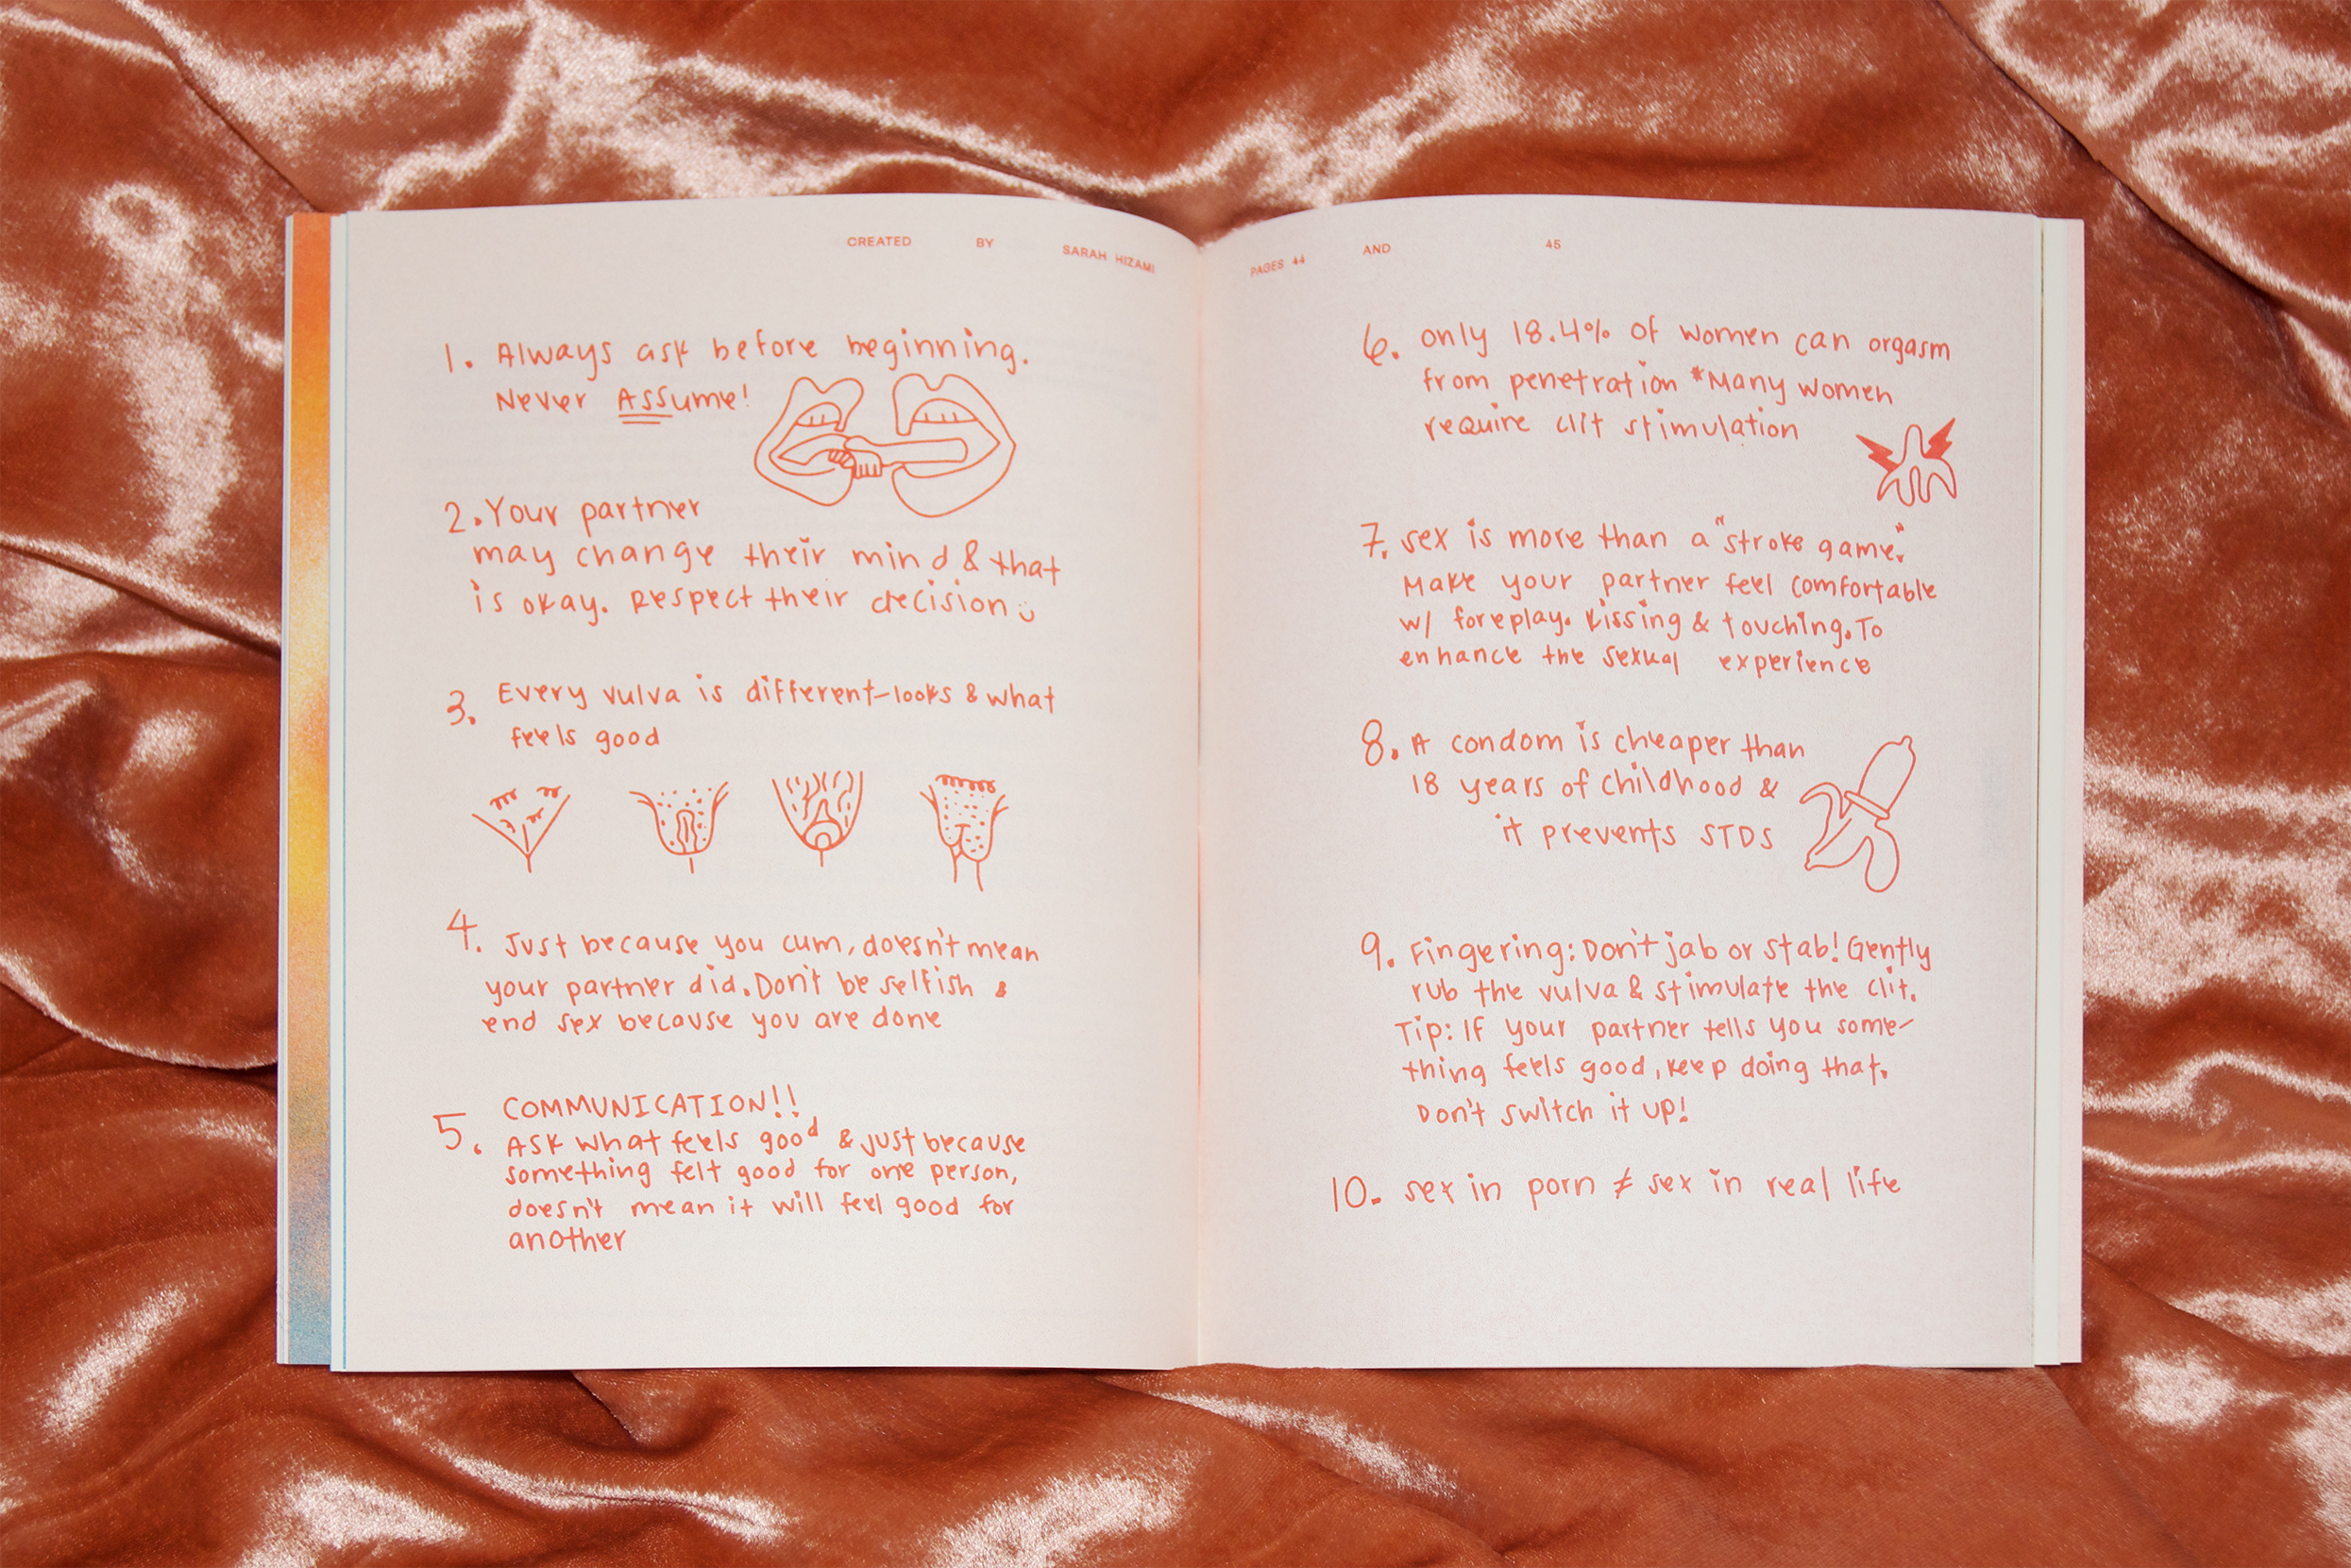 CREATED BY SARAH HIZAMI
1. Always ask before beginning.
Never ASSume!
2. Your partner
may change their mind & that
is okay. Respect their decision
3. Every vulva is different-looks & what
feels good
4. Just because you cum, doesn't mean
your partner did. Don't be selfish &
end sex because you are done
5. COMMUNICATION!!
Ask what feels good & just because
something felt good for one person,
doesn't mean it will feel good for
another
PAGES 44 AND 45
6. only 18.4% of women can orgasm
from penetration *Many women
require clit stimulation
7. sex is more than a "stroke game."
Make your partner feel comfortable
w/ foreplay. Kissing & touching. To
enhance the sexual experience
8. A condom is cheaper than
18 years of childhood &
it prevents STDS
9. Fingering: Don't jab or stab! Gently
rub the vulva & stimulate the clit.
Tip: If your partner tells you some-
thing feels good, keep doing that.
Don't switch it up!
10. sex in porn ≠ sex in real life